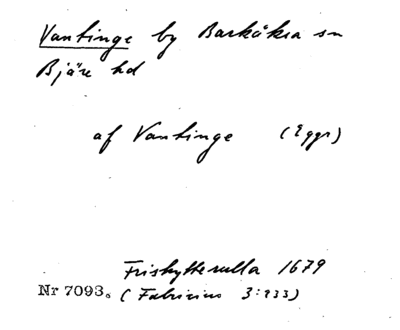 Vantinge by Barkåkra sn
Bjäre hd
af Vantinge (Eggr)
Friskytterulla 1679
Nr 7093. (Fabricius 3:233)